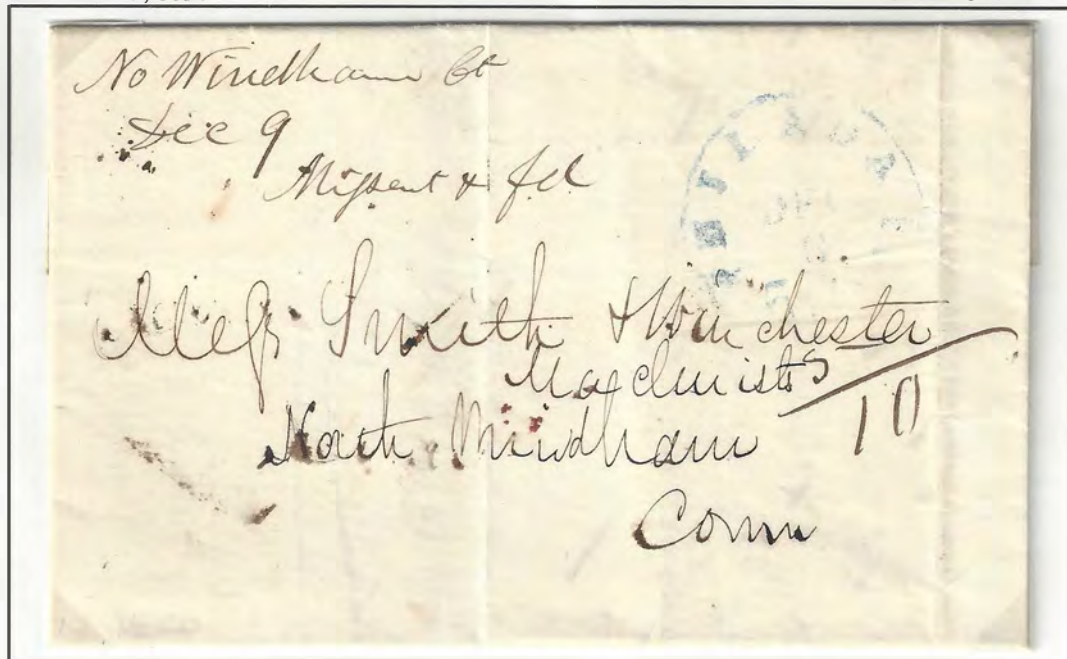 No Windham Ct
Dec 9
Missent & fd
Mess Smith & Winchester
Machinists
10
North Windham
Conn